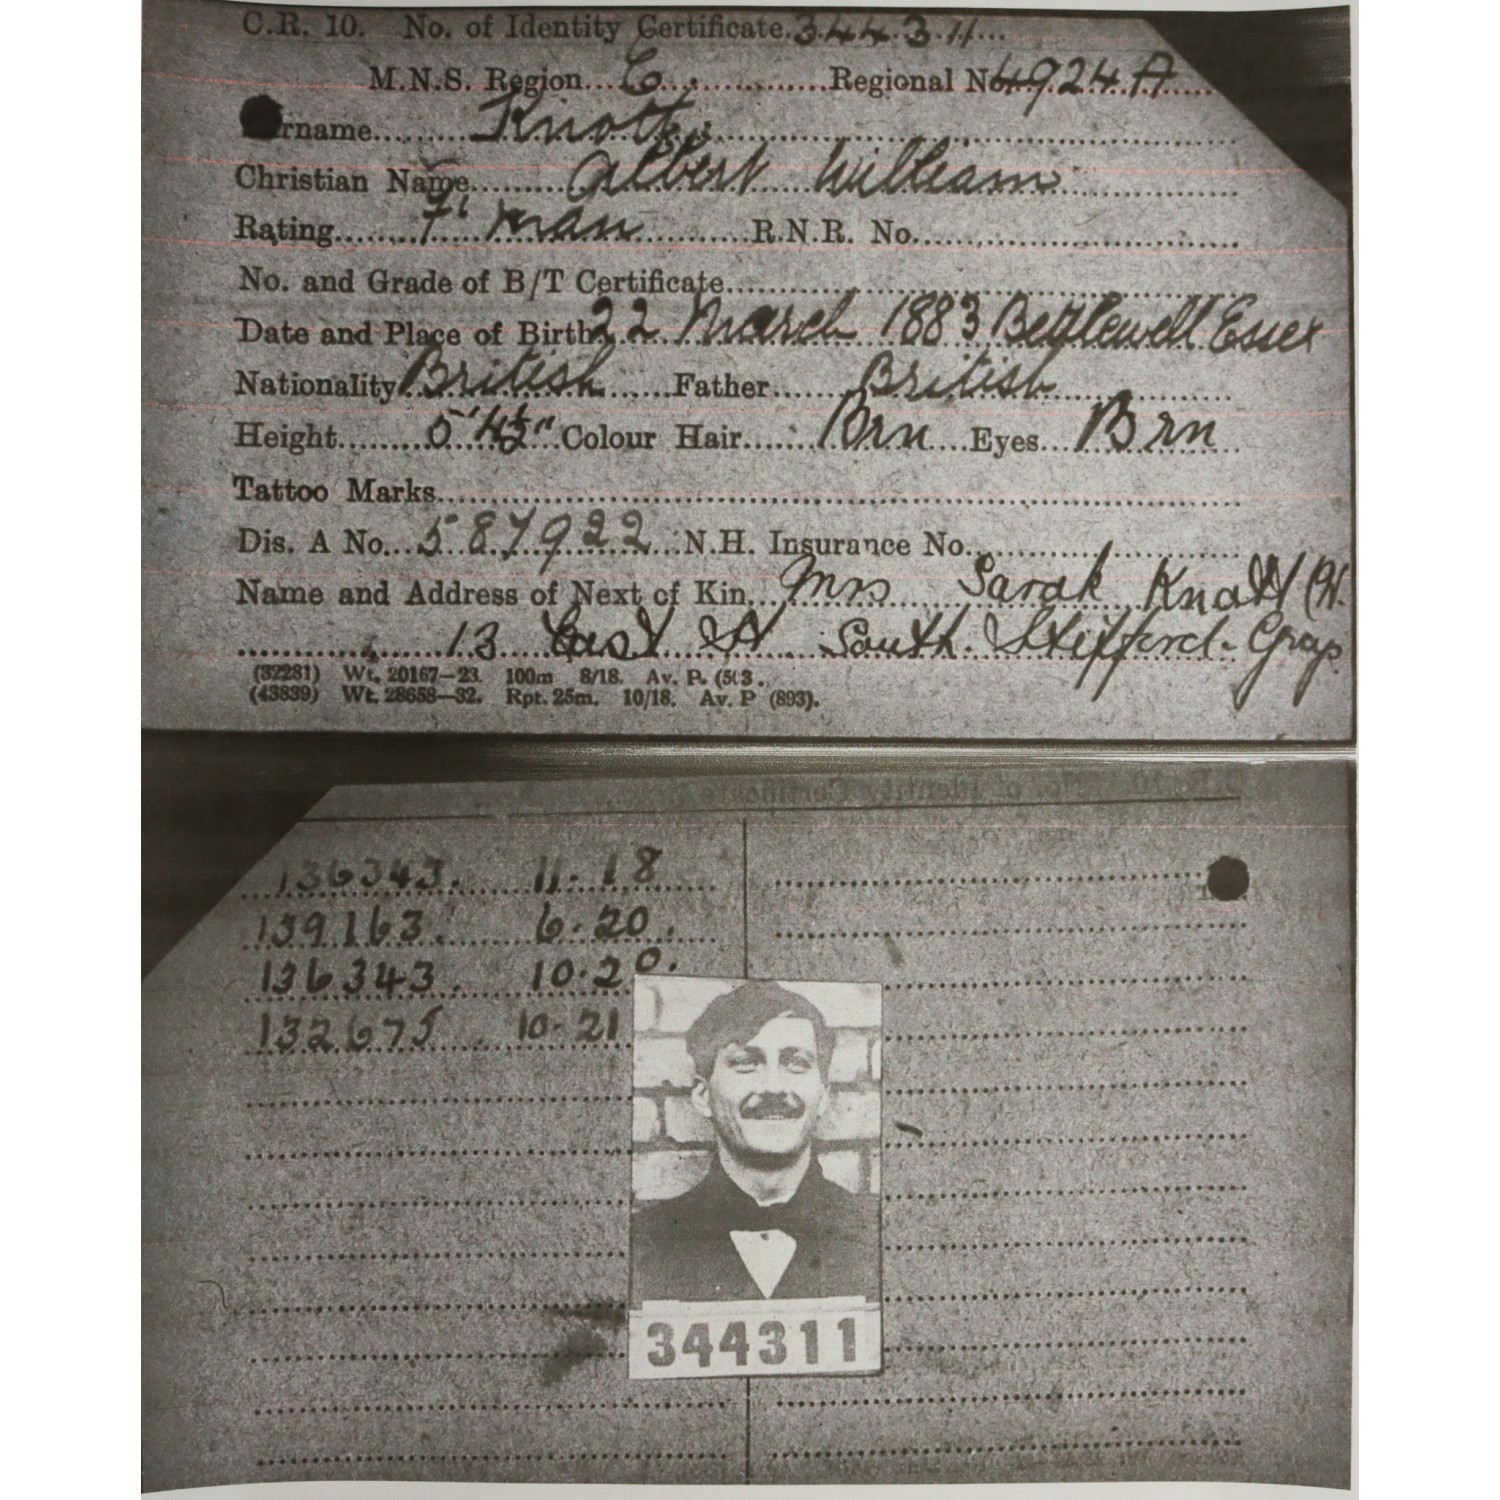 C.R. 10. No. of Identity Certificate. 344311
M.N.S. Region... 6 ... Regional No 4924 A
rname... Knott
Christian Name... Albert William
Rating... F' man ... R.N.R. No...
No. and Grade of B/T Certificate...
Date and Place of Birth. 22 March 1883 Essex
Nationality British ... Father... British
Height... 5' 4½" Colour Hair... Brn ... Eyes... Brn
Tattoo Marks...
Dis. A No... 587922 ... N.H. Insurance No...
Name and Address of Next of Kin... Mrs Sarah Knott (W.
13 East St South Stifford. Grays
(32281) Wt. 20167—23. 100m 8/18. Av. P. (503.
(43839) Wt. 28658—32. Rpt. 25m. 10/18. Av. P (893).
136343. 11.18
139163. 6.20.
136343. 10.20.
132675 10.21
344311